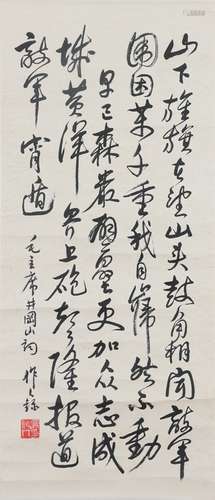 山下旌旗在望山头鼓角相闻敵军
围困万千重我自巋然不动
早已森严壁垒更加众志成
城黄洋界上砲声隆报道
敵军宵遁
毛主席井岡山词